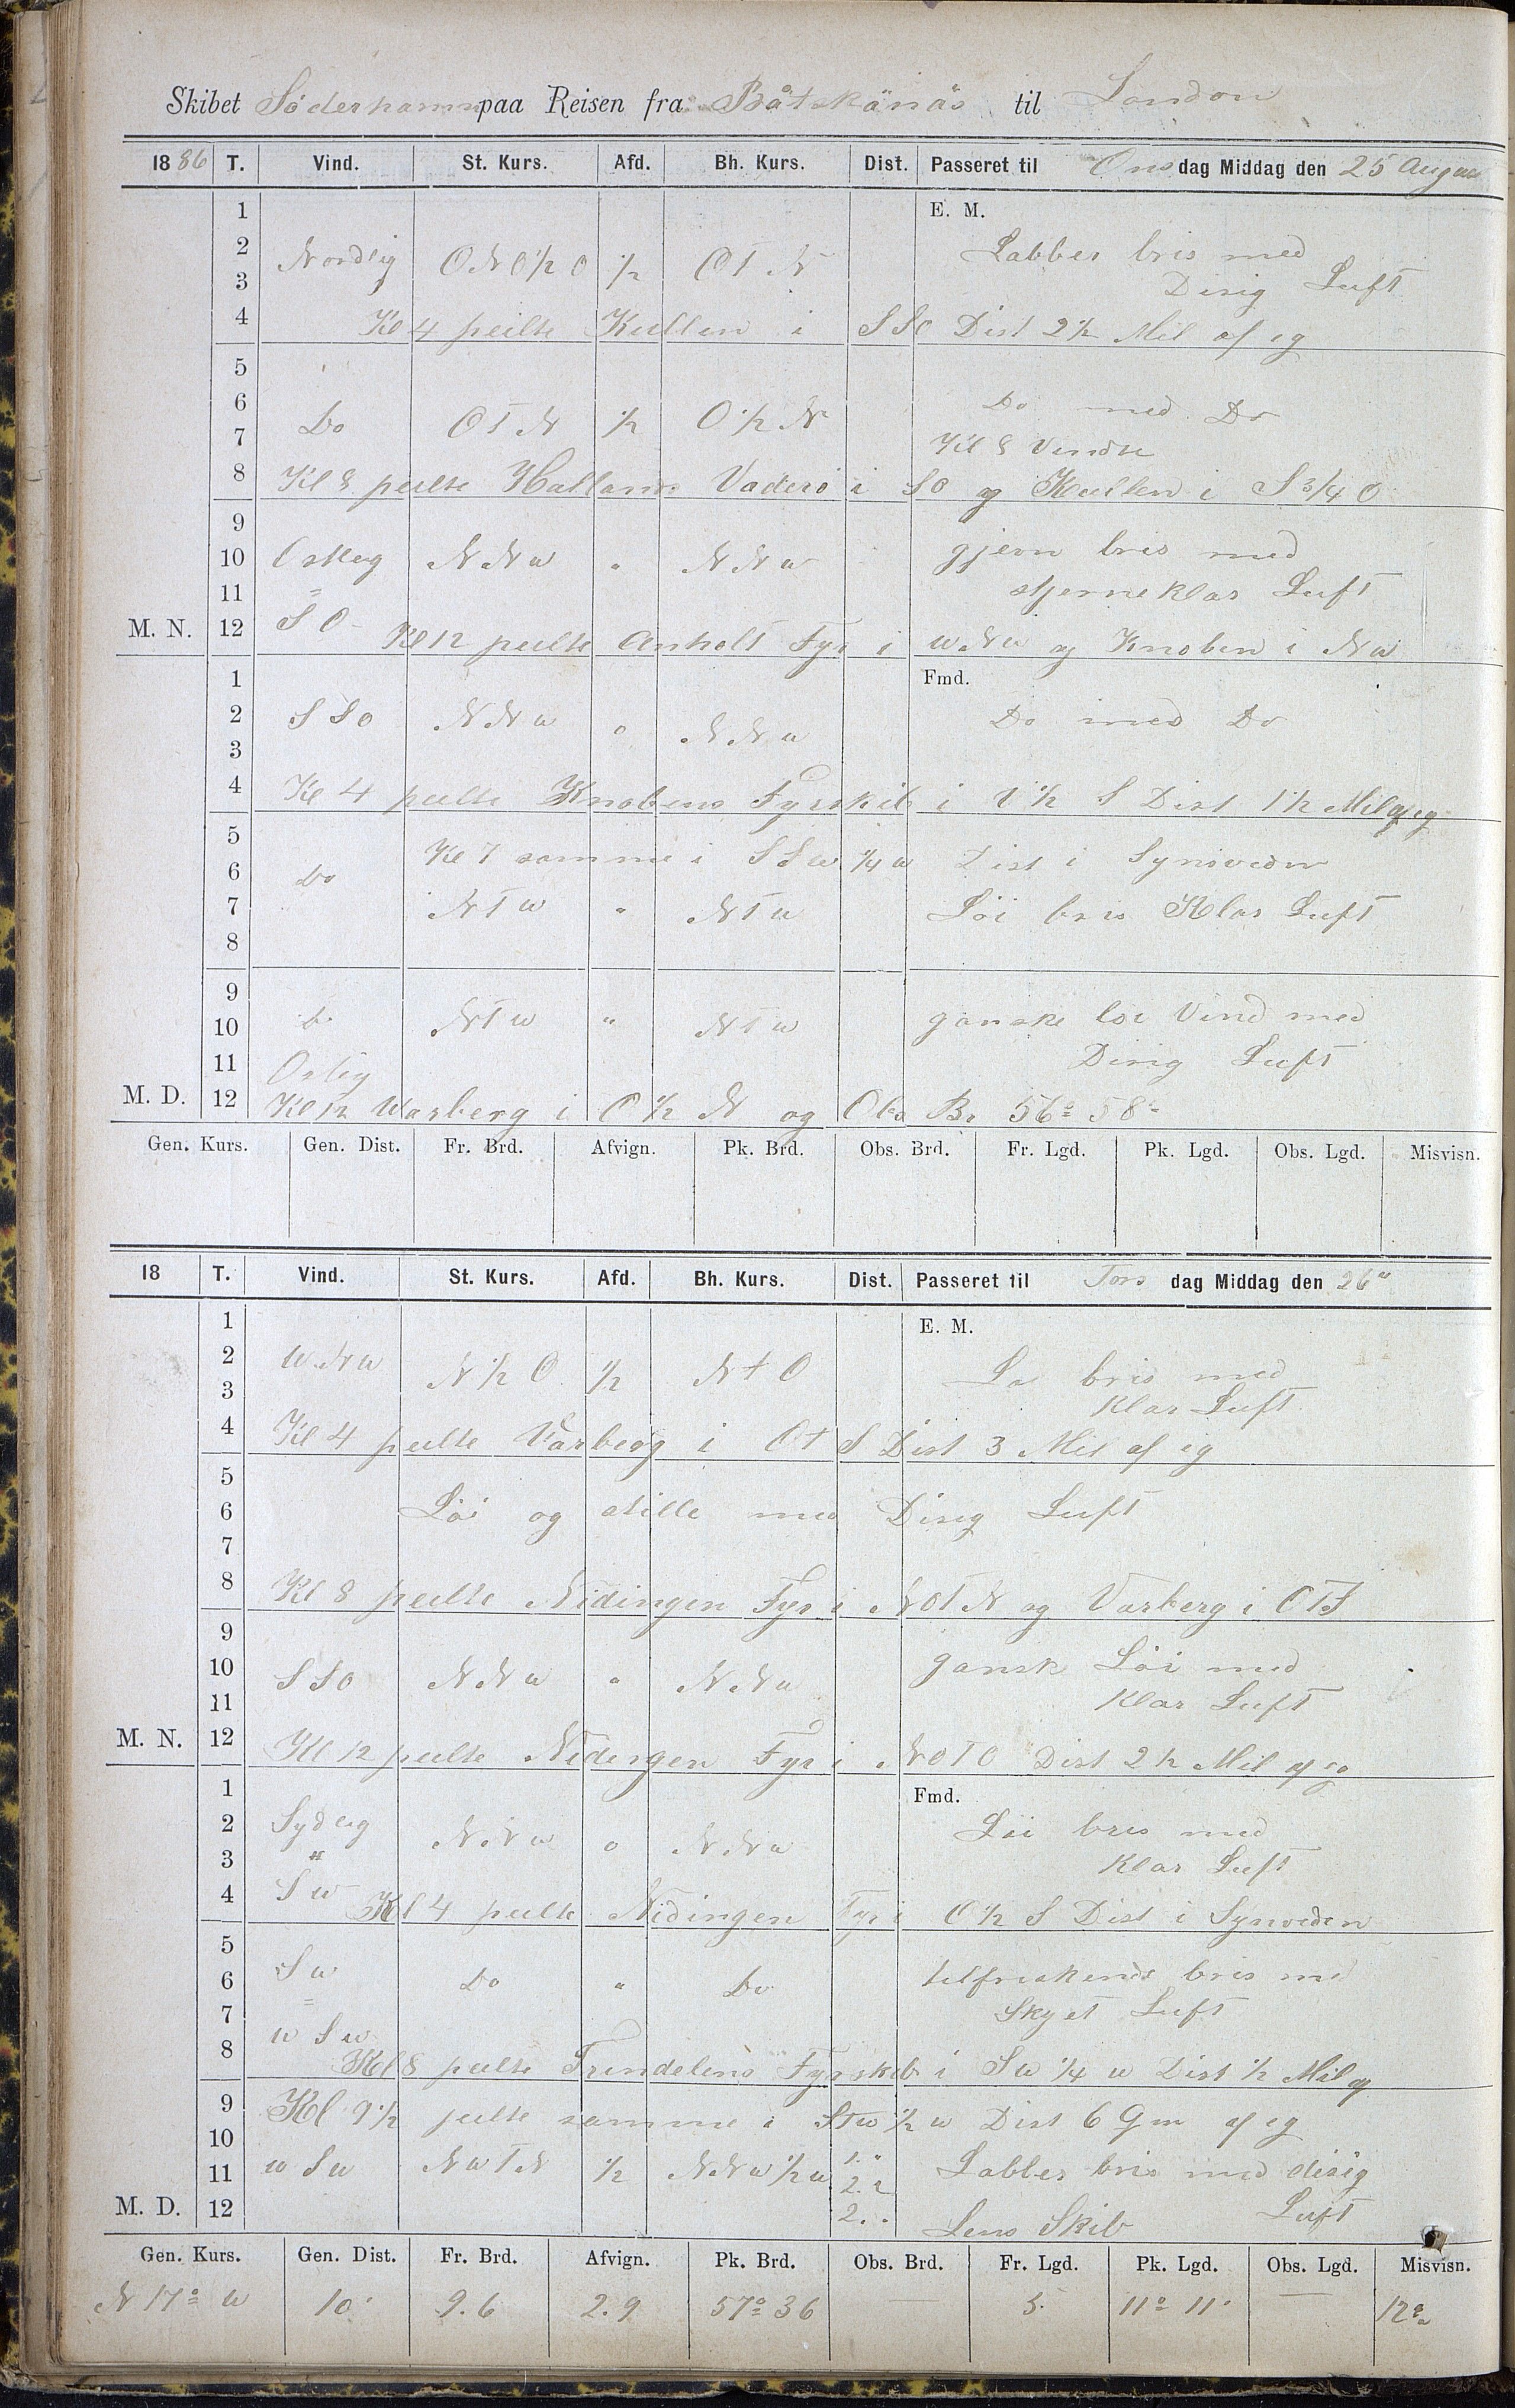 Skibet Söderhamn paa Reisen fra Båtskänäs til London
1886 T. Vind. St. Kurs. Afd. Bh. Kurs. Dist. Passeret til Onsdag Middag den 25 August
1 E. M.
2 Nordlig ONO½O ½ OTN Labber bris med
3 Disig Luft
4 Kl 4 peilte Kullen i SSO Dist 2½ Mil af ig
5
6 Do OTN ½ O½N Do med Do
7 Kl 8 Vendte
8 Kl 8 peilte Hallands Vaderö i SO og Kullen i S3/4O
9
10 Ostlig NNW " NNW gjevn bris med
11 = stjerneklar Luft
M. N. 12 SO Kl 12 peilte Anholt Fyr i WNW og Knoben i NW
1 Fmd.
2 SSO NNW " NNW Do med Do
3
4 Kl 4 peilte Knobens Fyrskib i V½S Dist 1½ Mil af ig
5
6 Do Kl 7 samme i SSW¼W Dist i Synsveden
7 NTW " NTW Löi bris Klar Luft
8
9
10 Do NTW " NTW ganske löi Vind med
11 Ostlig Disig Luft
M. D. 12 Kl 12 Warberg i O½N og Obs Br 56° 58'
Gen. Kurs. Gen. Dist. Fr. Brd. Afvign. Pk. Brd. Obs. Brd. Fr. Lgd. Pk. Lgd. Obs. Lgd. Misvisn.
18 T. Vind. St. Kurs. Afd. Bh. Kurs. Dist. Passeret til Torsdag Middag den 26"
1 E. M.
2 WNW N½O ½ NtO La bris med
3 Klar Luft
4 Kl 4 peilte Varberg i OtS Dist 3 Mil af ig
5
6 Löi og stille med Disig Luft
7
8 Kl 8 peilte Nidingen Fyr i NOTN og Varberg i OTS
9
10 SSO NNW " NNW gansk Löi med
11 Klar Luft
M. N. 12 Kl 12 peilte Nidingen Fyr i NOTO Dist 2½ Mil af ig
1 Fmd.
2 Sydlig NNW " NNW Löi bris med
3 " Klar Luft
4 SW Kl 4 peilte Nidingen Fyr i O½S Dist i Synveden
5
6 SW Do " Do tilfriskende bris med
7 = Skyet Luft
8 WSW Kl 8 peilte Trindelens Fyrskib i SW¼W Dist ½ Mil af
9 Kl 9½ peilte samme i STW½W Dist 6 Qm af ig
10 1. "
11 WSW NWTN ½ NNW½W 2. 2 Labber bris med disig
M. D. 12 2. . Lens Skib Luft
Gen. Kurs. Gen. Dist. Fr. Brd. Afvign. Pk. Brd. Obs. Brd. Fr. Lgd. Pk. Lgd. Obs. Lgd. Misvisn.
N 17° W 10' 9.6 2.9 57° 36 — 5. 11° 11' — 12°